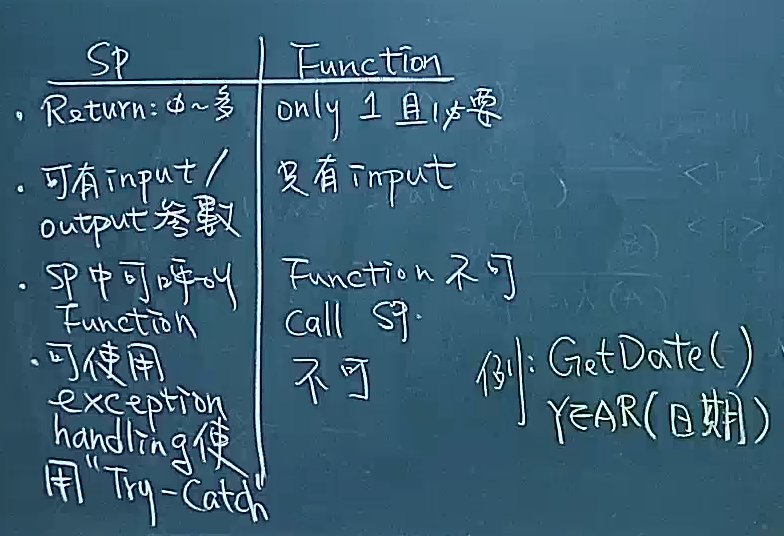 SP Function
• Return: 0~多 only 1 且必要
• 可有input/ 只有input
output 參數
• SP中可呼叫 Function 不可
Function Call SP.
• 可使用 不可
exception
handling使
用"Try-Catch"
例: GetDate()
YEAR(日期)